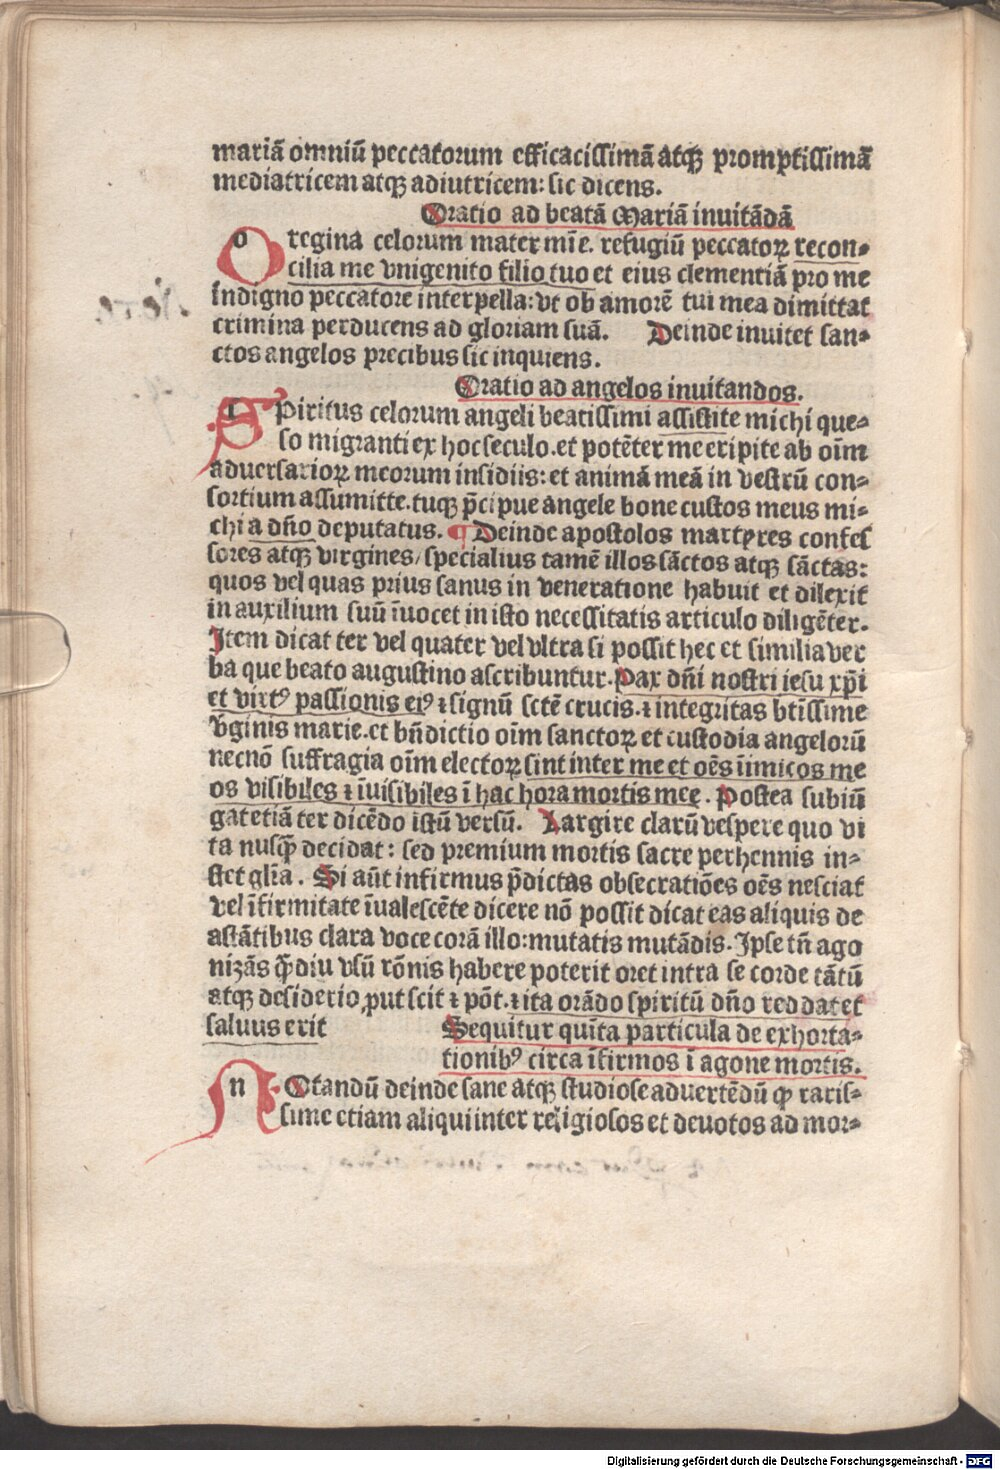 mariā omniū peccatorum efficacissimā atqꝫ promptissimā
mediatricem atqꝫ adiutricem: sic dicens.
Oratio ad beatā Mariā inuitādā
O regina celorum mater mīe. refugiū peccatorꝝ recon⸗
cilia me vnigenito filio tuo et eius clementiā pro me
indigno peccatore interpella: vt ob amorē tui mea dimittat
crimina perducens ad gloriam suā. Deinde inuitet san⸗
ctos angelos precibus sic inquiens.
Oratio ad angelos inuitandos.
SPiritus celorum angeli beatissimi assistite michi que⸗
so migranti ex hoc seculo. et potēter me eripite ab oīm
aduersariorꝝ meorum insidiis: et animā meā in vestrū con⸗
sortium assumitte. tuqꝫ p̄cipue angele bone custos meus mi⸗
chi a dn̄o deputatus. ¶ Deinde apostolos martyres confes
sores atqꝫ virgines/ specialius tamē illos sāctos atqꝫ sāctas:
quos vel quas prius sanus in veneratione habuit et dilexit
in auxilium suū īuocet in isto necessitatis articulo diligēter.
Item dicat ter vel quater vel vltra si possit hec et similia ver
ba que beato augustino ascribuntur. Pax dn̄i nostri iesu xp̄i
et virtꝰ passionis eiꝰ ⁊ signū sctē crucis. ⁊ integritas btīssime
v̄ginis marie. et bn̄dictio oīm sanctorꝝ et custodia angelorū
necnō suffragia oīm electorꝝ sint inter me et oēs īimicos me
os visibiles ⁊ īuisibiles ī hac hora mortis mee. Postea subiū
gat etiā ter dicēdo istū versū. Largire clarū vespere quo vi
ta nusqꝫ̄ decidat: sed premium mortis sacre perhennis in⸗
stet glīa. Si aūt infirmus p̄dictas obsecratiōes oēs nesciat
vel īfirmitate īualescēte dicere nō possit dicat eas aliquis de
astātibus clara voce corā illo: mutatis mutādis. Ipse tn̄ ago
nizās qꝫ̄diu vsū rōnis habere poterit oret intra se corde tātū
atqꝫ desiderio ꝓut scit ⁊ pōt. ⁊ ita orādo spiritū dn̄o reddat et
saluus erit Sequitur quīta particula de exhorta⸗
tionibꝰ circa īfirmos ī agone mortis.
NOtandū deinde sane atqꝫ studiose aduertēdū ꝙ raris⸗
sime etiam aliqui inter religiosos et deuotos ad mor⸗
Digitalisierung gefördert durch die Deutsche Forschungsgemeinschaft - DFG